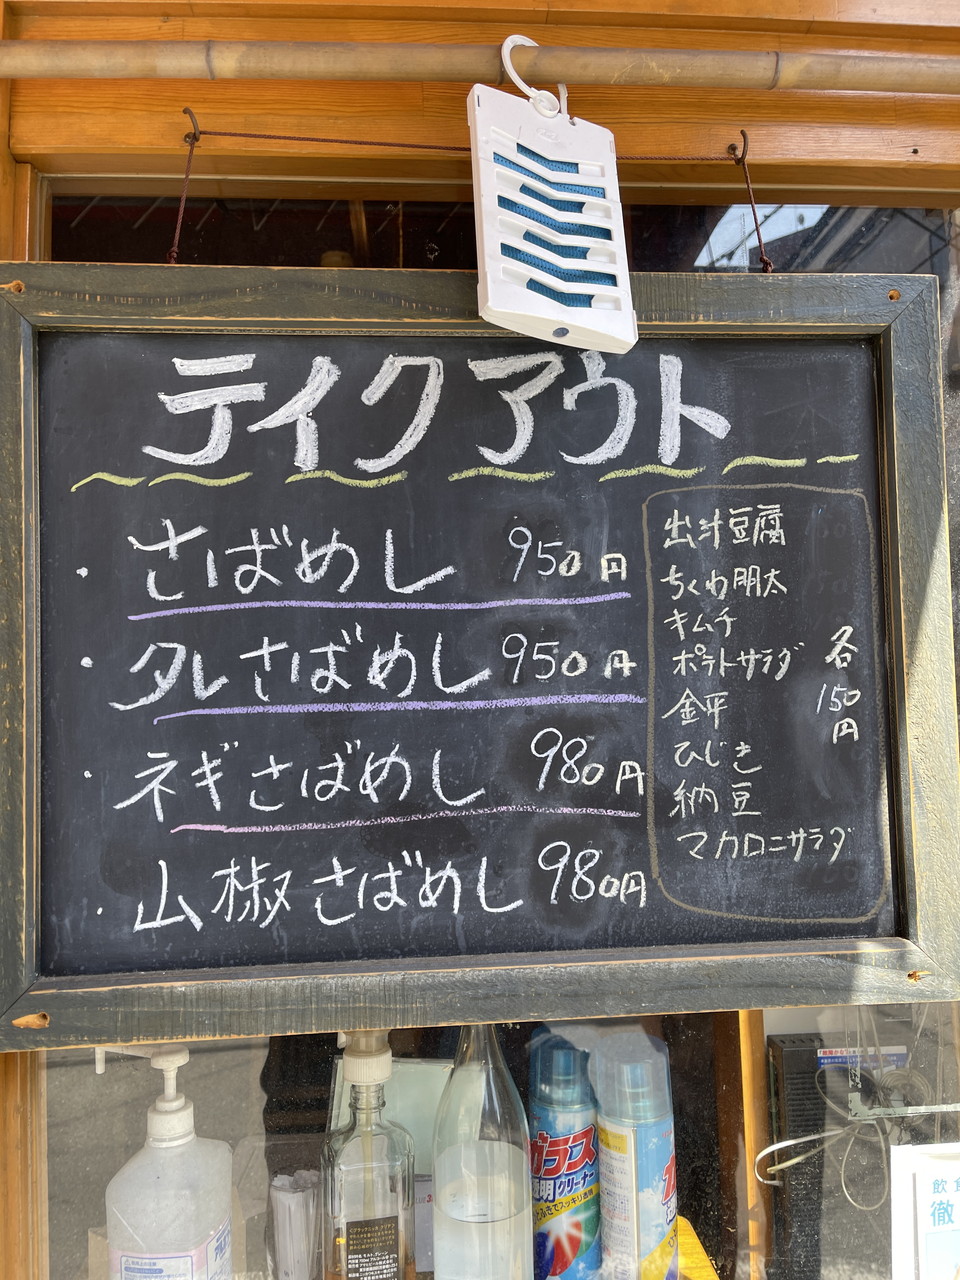 テイクアウト
・さばめし 950円
・タレさばめし 950円
・ネギさばめし 980円
・山椒さばめし 980円
出汁豆腐
ちくわ明太
キムチ
ポテトサラダ
金平
ひじき
納豆
マカロニサラダ
各
150
円
ガラス
透明クリーナー
飲食
徹